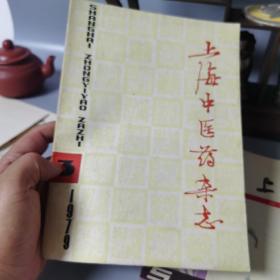 SHANGHAI
ZHONGYIYAO ZAZHI
上海中医药杂志
3
1979
上
S